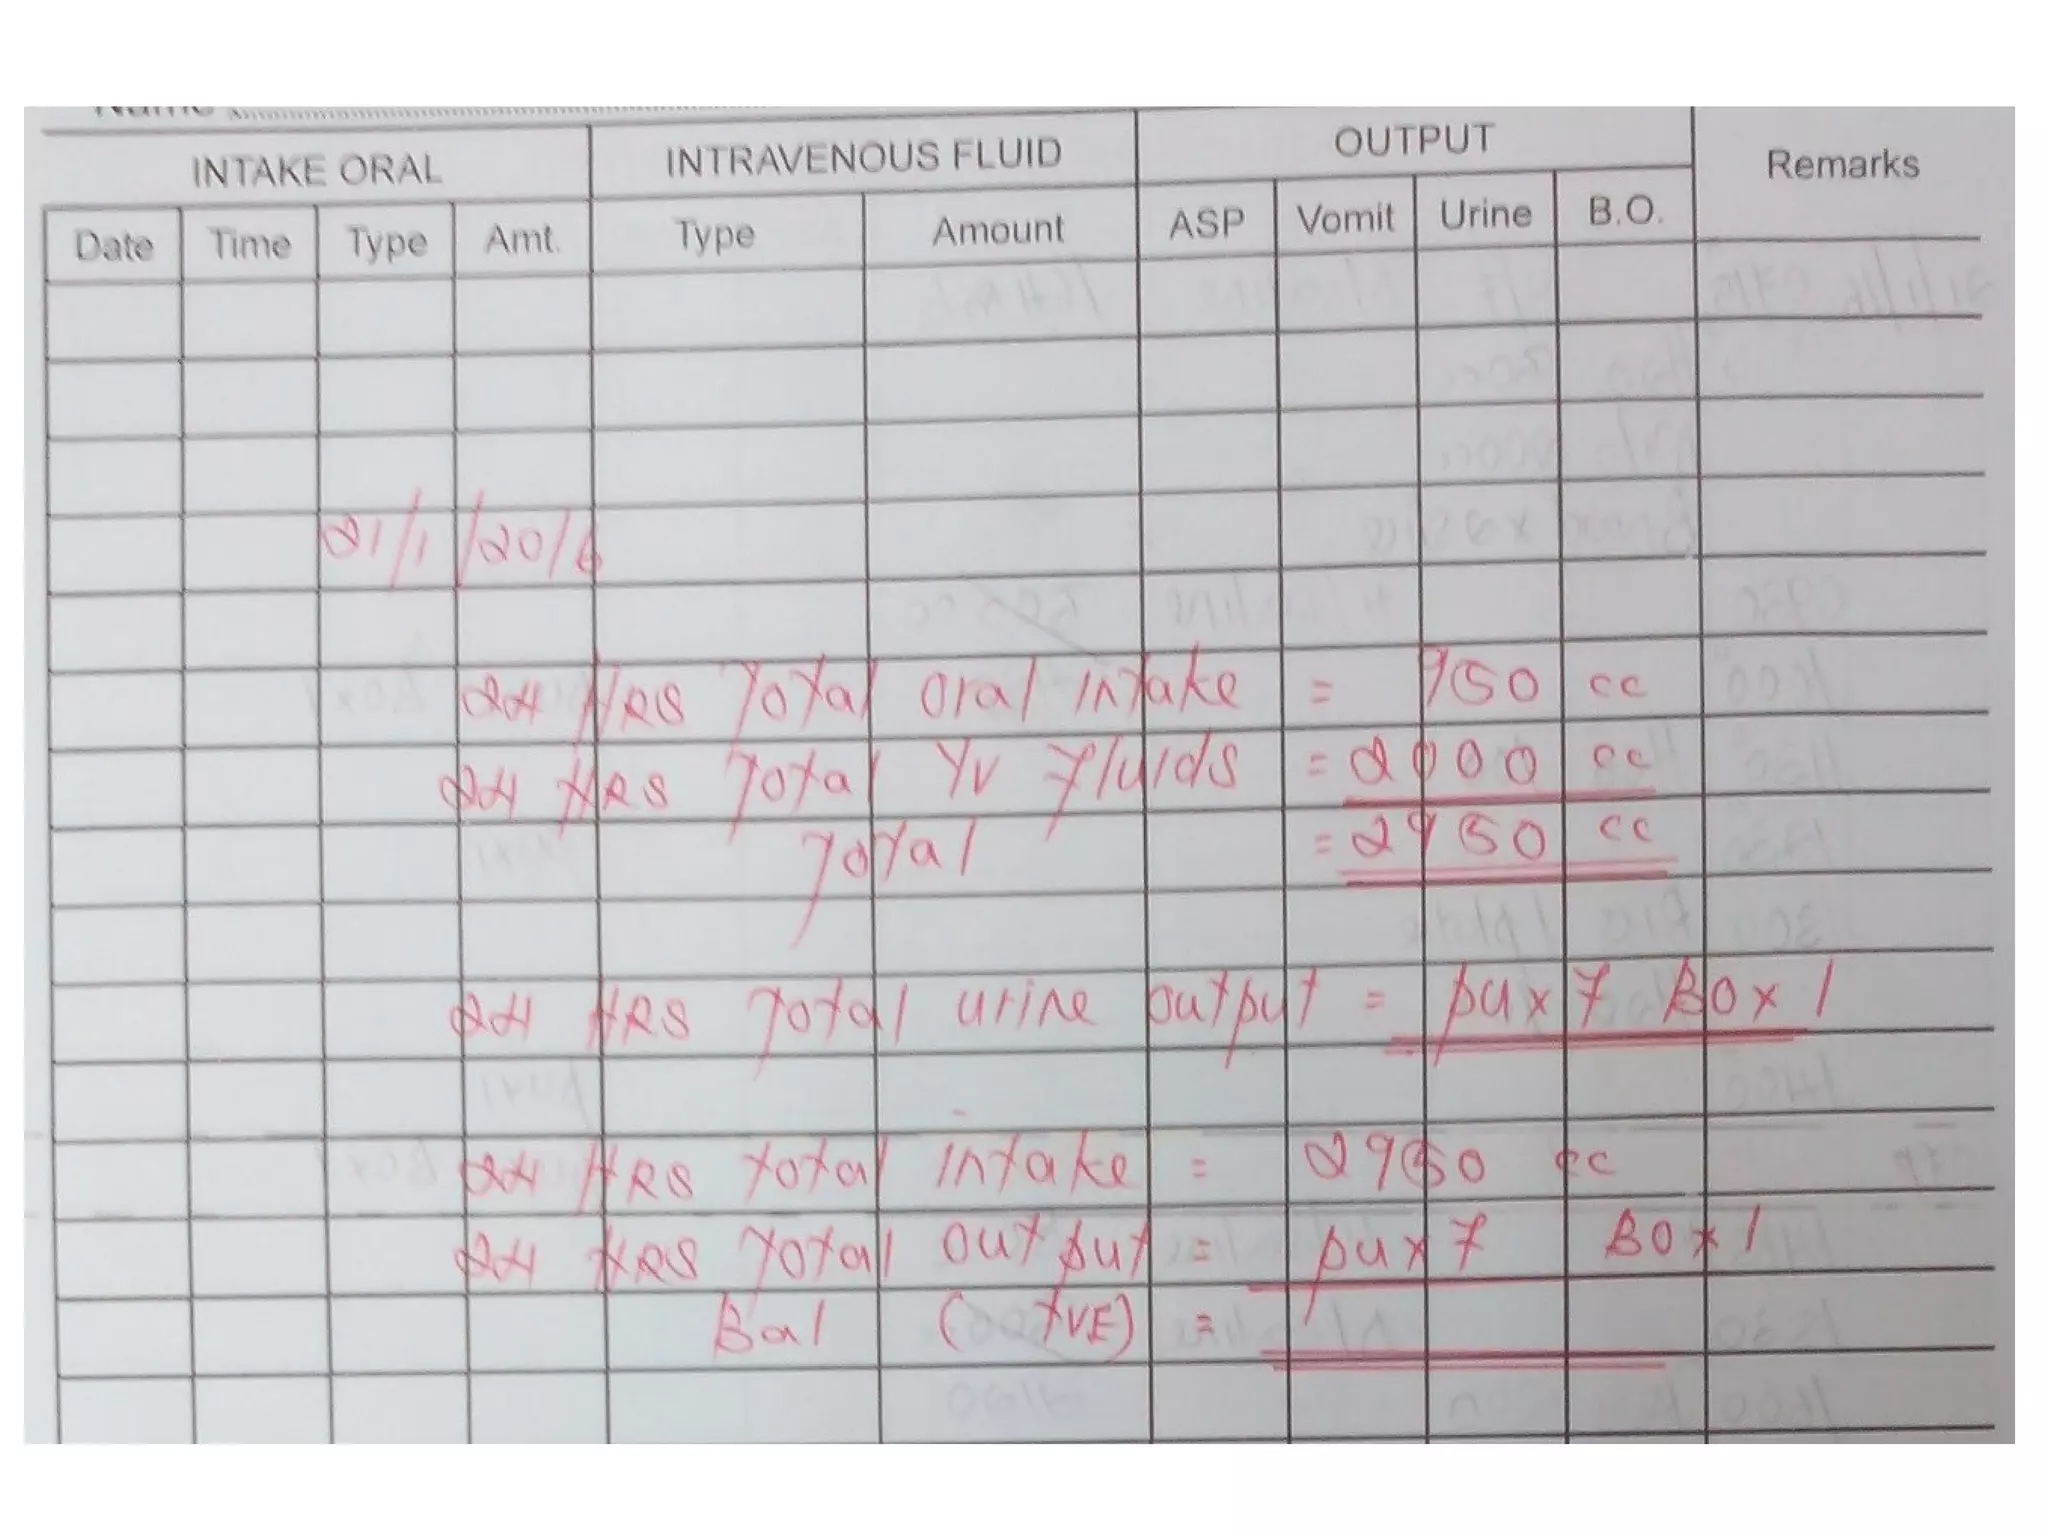 Name
INTAKE ORAL INTRAVENOUS FLUID OUTPUT Remarks
Date Time Type Amt. Type Amount ASP Vomit Urine B.O.
21/1/2016
24 HRS Total Oral Intake = 950 cc
24 HRS Total IV Fluids = 2000 cc
Total = 2950 cc
24 HRS Total urine output = pu x 7 BO x 1
24 HRS total intake = 2950 cc
24 HRS Total Output = pu x 7 BO x 1
Bal (+VE) =